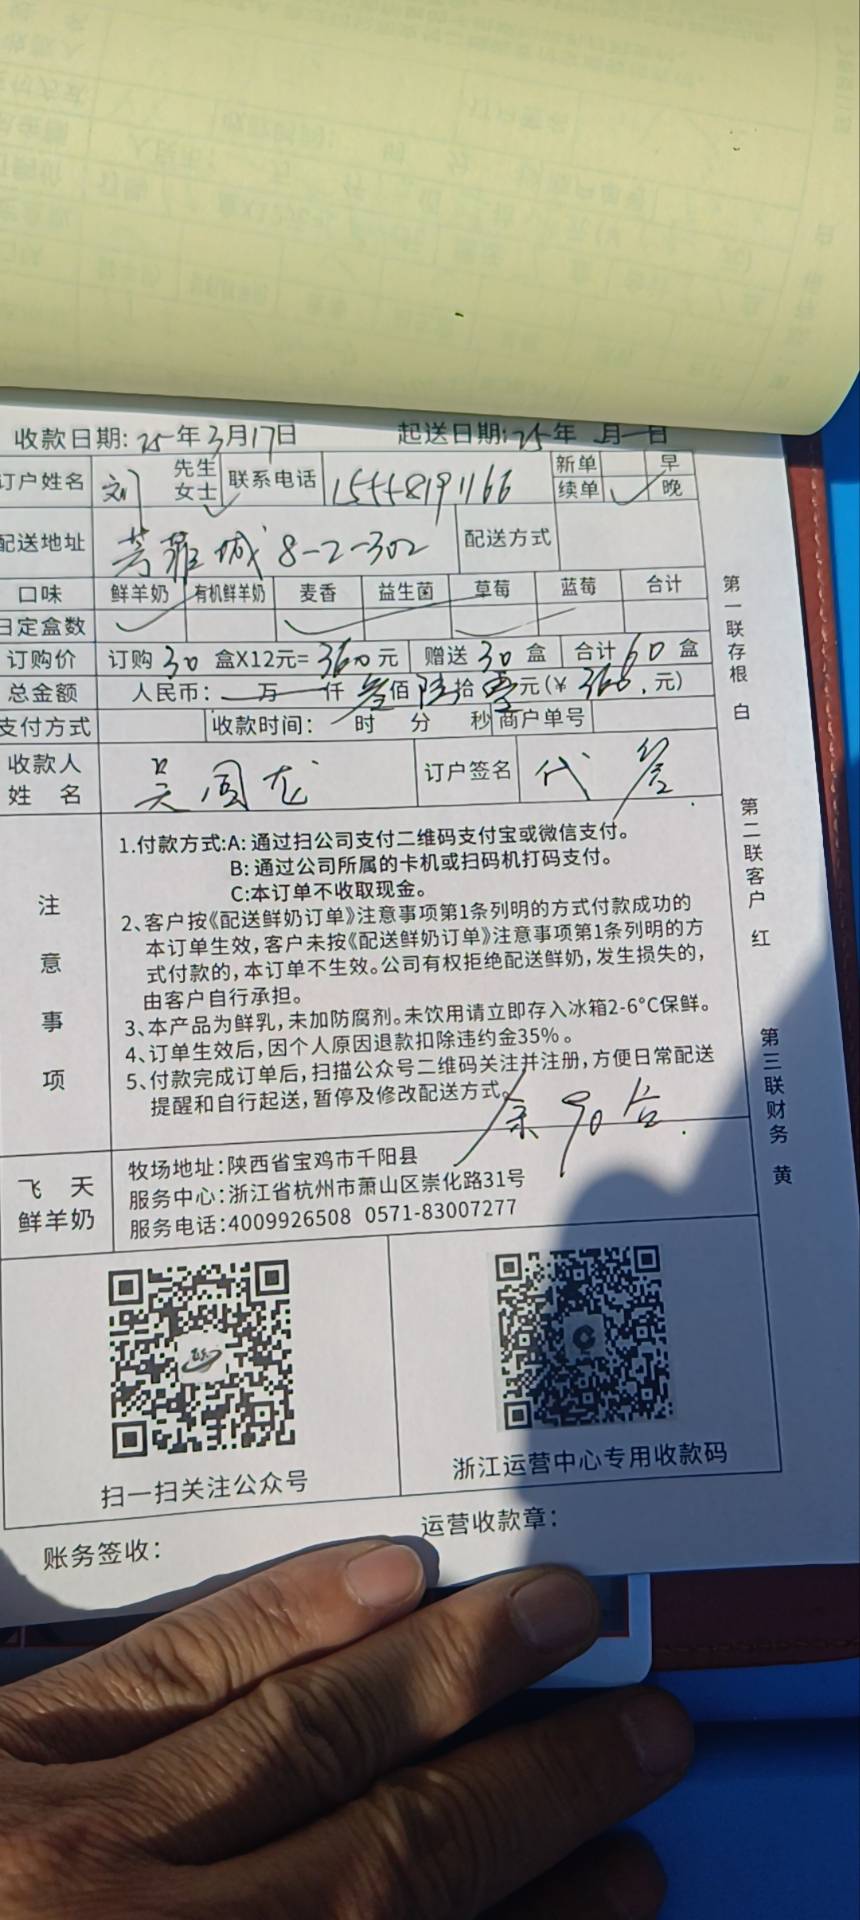 收款日期: 25年3月17日 起送日期: 25年 月一日
订户姓名 刘 先生 女士 联系电话 15558191166 新单 早
续单 晚
配送地址 芳菲城 8-2-302 配送方式
口味 鲜羊奶 有机鲜羊奶 麦香 益生菌 草莓 蓝莓 合计
日定盒数
订购价 订购 30 盒X12元= 360元 赠送 30 盒 合计 60 盒
总金额 人民币: 一万一仟叁佰陆拾零元(¥ 360. 元)
支付方式 收款时间: 时 分 秒 商户单号
收款人姓名 吴国龙 订户签名 代签
注意事项
1.付款方式:A: 通过扫公司支付二维码支付宝或微信支付。
B: 通过公司所属的卡机或扫码机打码支付。
C:本订单不收取现金。
2、客户按《配送鲜奶订单》注意事项第1条列明的方式付款成功的
本订单生效,客户未按《配送鲜奶订单》注意事项第1条列明的方
式付款的,本订单不生效。公司有权拒绝配送鲜奶,发生损失的,
由客户自行承担。
3、本产品为鲜乳,未加防腐剂。未饮用请立即存入冰箱2-6°C保鲜。
4、订单生效后,因个人原因退款扣除违约金35%。
5、付款完成订单后,扫描公众号二维码关注并注册,方便日常配送
提醒和自行起送,暂停及修改配送方式。
余90合
飞天鲜羊奶
牧场地址:陕西省宝鸡市千阳县
服务中心:浙江省杭州市萧山区崇化路31号
服务电话:4009926508 0571-83007277
扫一扫关注公众号
浙江运营中心专用收款码
账务签收:
运营收款章:
第一联存根 白
第二联客户 红
第三联财务 黄